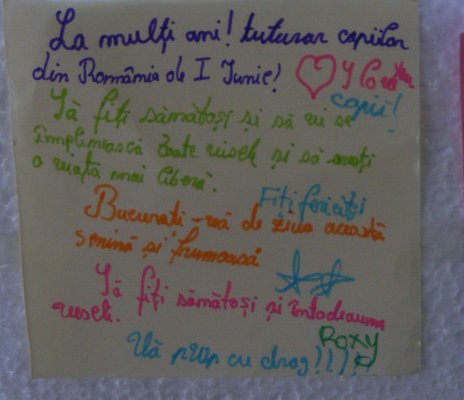 La mulți ani! tuturor copiilor
din România de I Iunie! I love you
copii!
Să fiți sămătoși și să vi se
împlinească toate visele și să aveți
o viață mai liberă.
Fiți fericiți
Bucurati-vă de ziua aceasta
senină și frumoasă.
Să fiți sămătoși și întodeauna
veseli.
Roxy
Vă pup cu drag!!!!